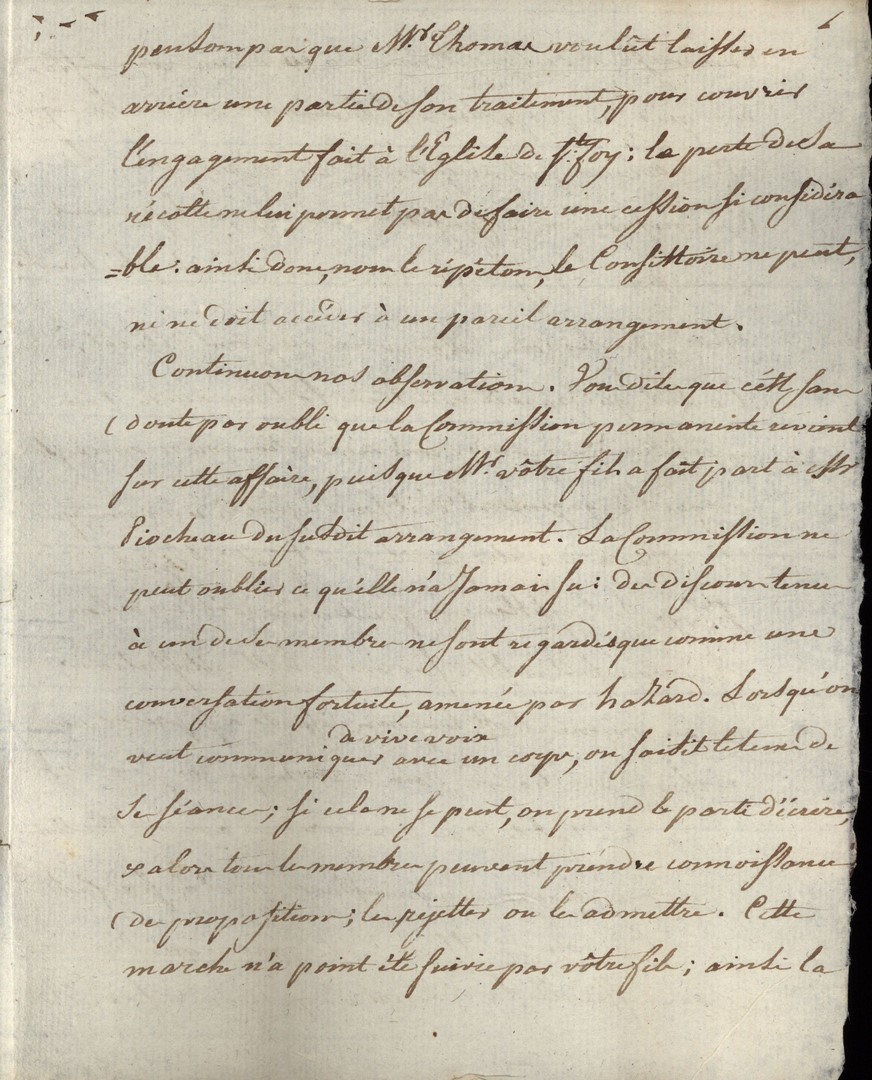 pensons pas que Mr. Thomas voulût laisser en
arriére une partie de son traitement, pour couvrir
l'engagement fait à l'Eglise de Ste. Foy; la perte de sa
récolte ne lui permet pas de faire une cession si considéra
=ble: ainsi donc, nous le répétons, le Consistoire ne peut,
ni ne doit accéder à un pareil arrangement.
Continuons nos observations. Vous dites que c'ést sans
doute par oubli que la Commission permanente revient
sur cette affaire, puisque Mr. vôtre fils a fait part à Mr
Piocheau du susdit arrangement. La Commission ne
peut oublier ce qu'elle n'a Jamais su: des discours tenus
à un de ses membres ne sont regardés que comme une
conversation fortuite, amenée par hazard. Lorsqu'on
de vive voix
veut communiquer avec un corps, on saisit le tems de
Se séances; si cela ne se peut, on prend le parti d'écrire,
& alors tous les membres peuvent prendre connoissance
des propositions; les rejetter ou les admettre. Cette
marche n'a point été suivie par vôtre fils; ainsi la